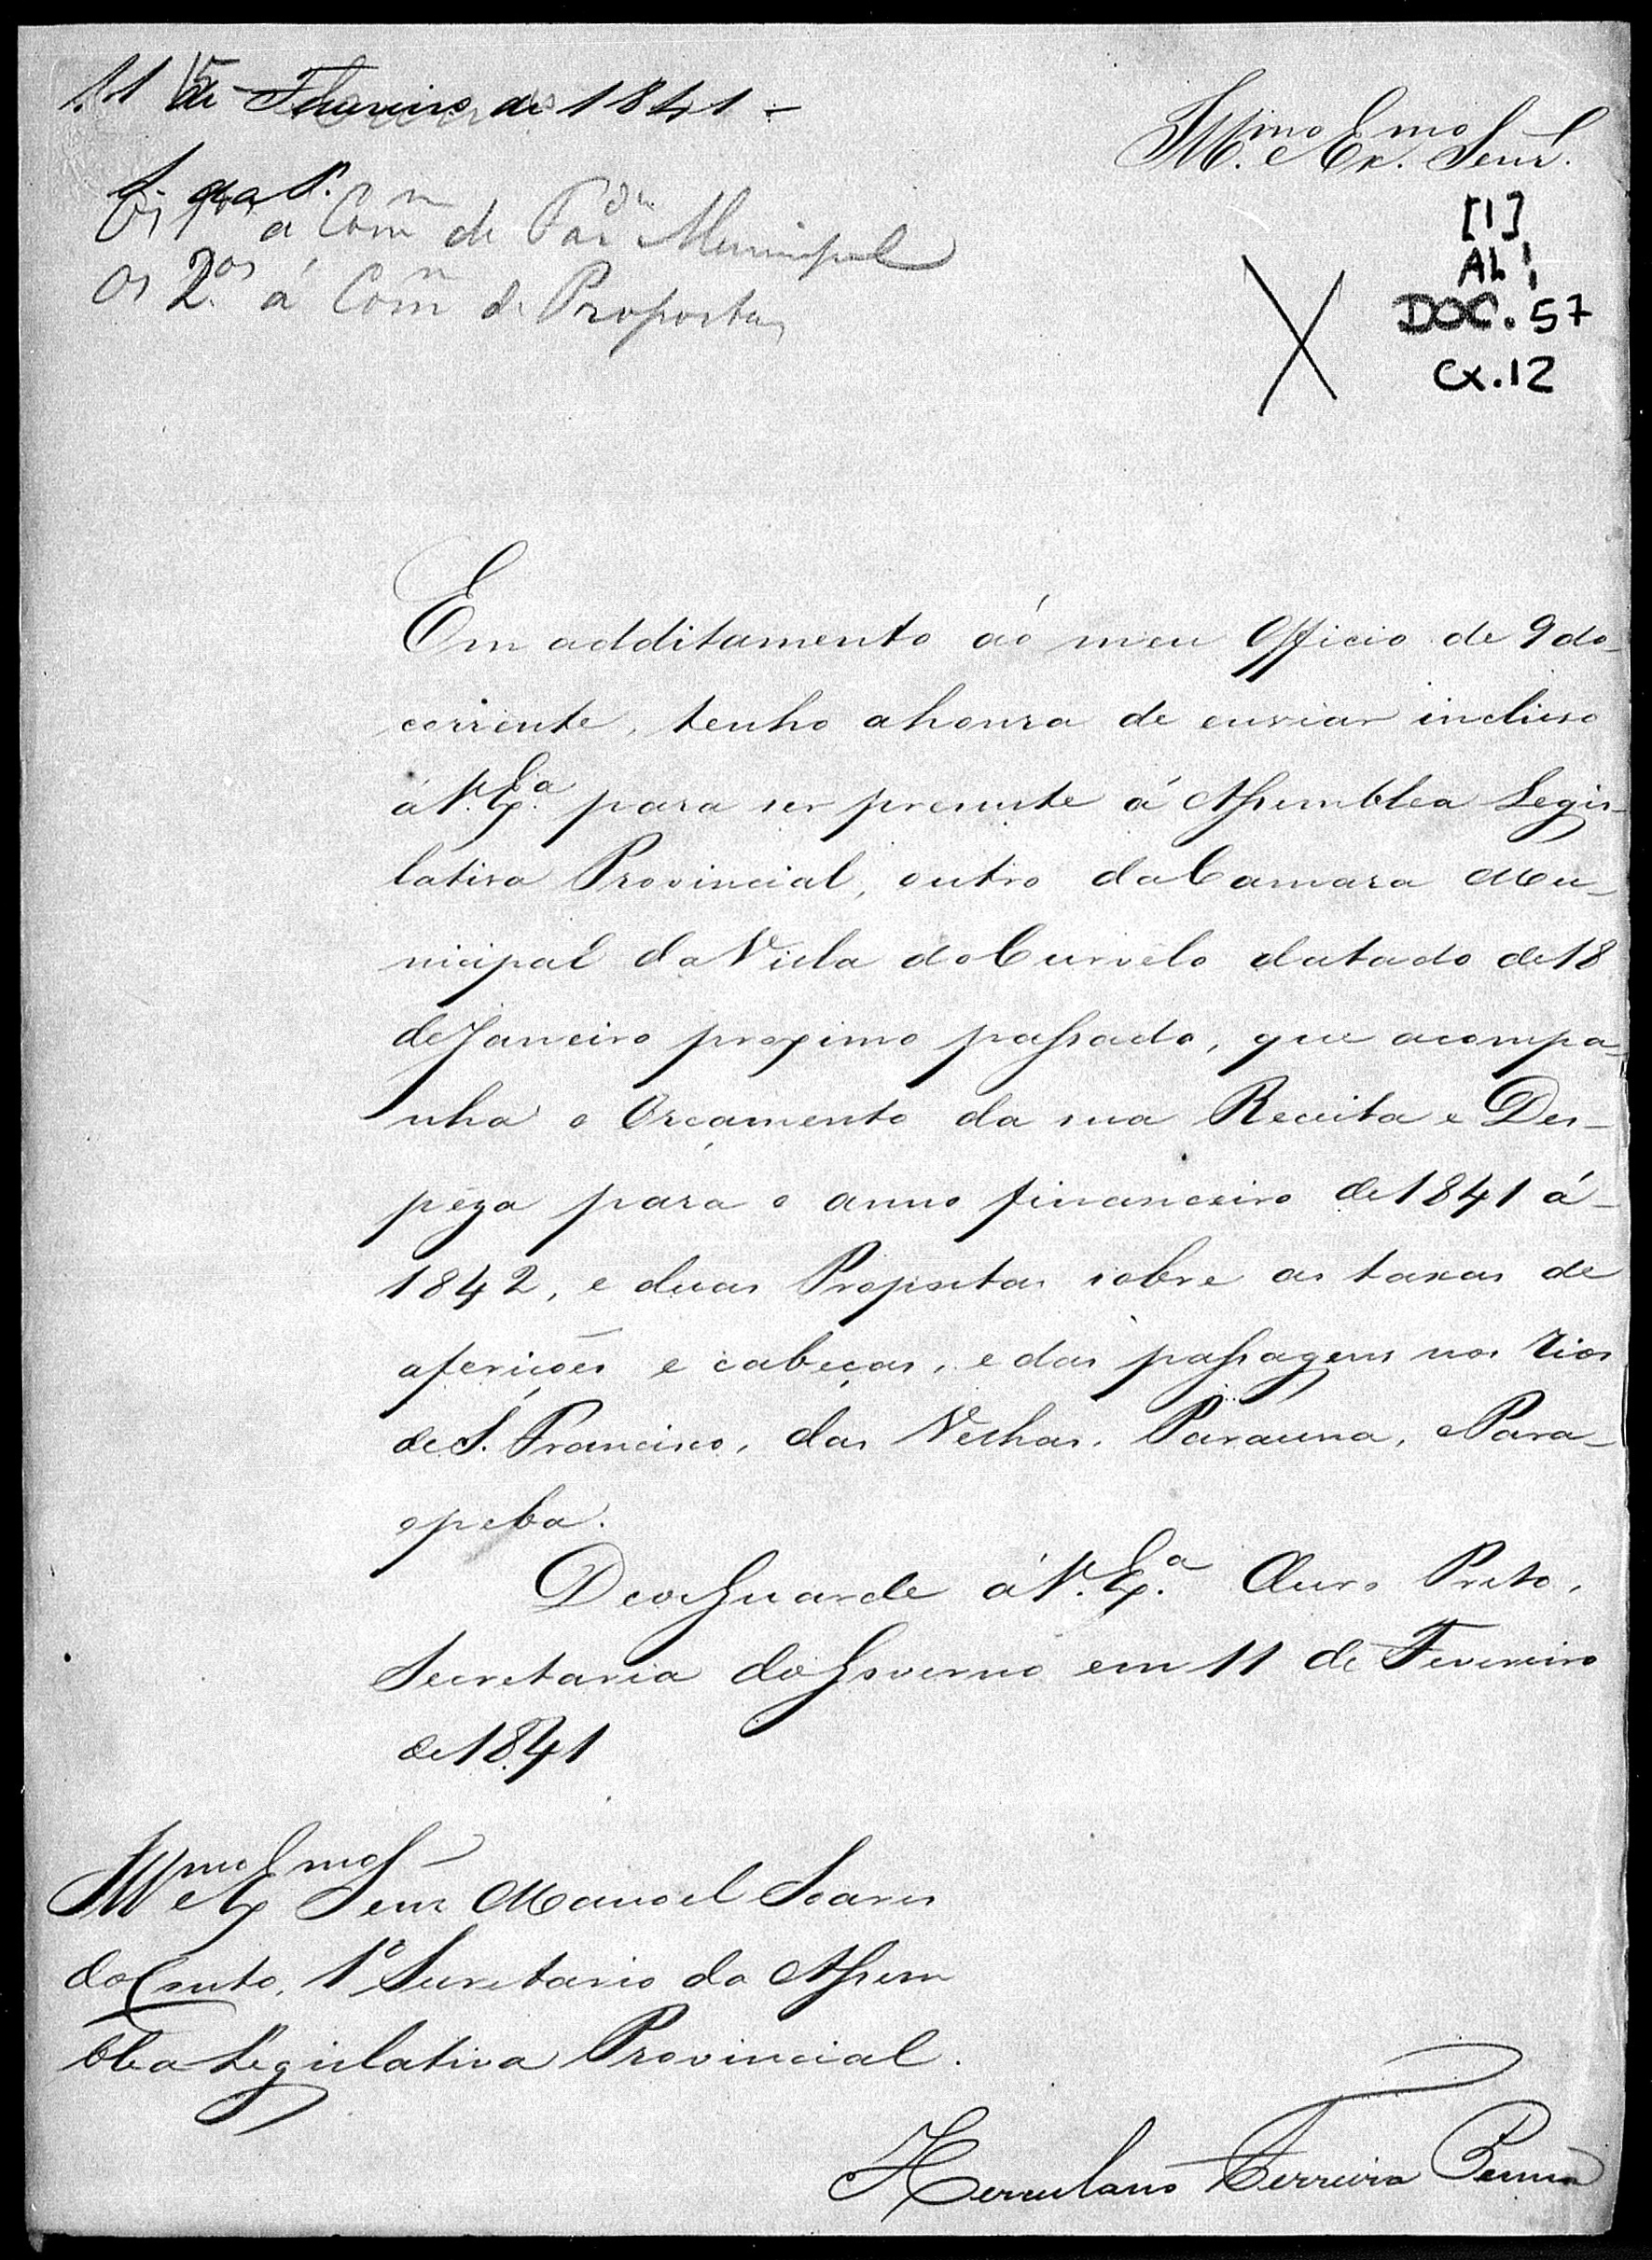 11 de Fevereiro de 1841 -
Illmo e Exmo Senr.
á Comm de Municipal
Os 2os á Comm de Propostas
[1]
AL 1,
DOC. 57
CX. 12
X
Em additamento áo meu Officio de 9 do
corrente, tenho a honra de enviar incluso
á V. Exa. para ser presente á Assemblea Legis-
lativa Provincial, outro da Camara Mu-
nicipal da Villa do Curvelo datado de 18
de Janeiro proximo passado, que acompa-
nha o Orçamento da sua Receita e Des-
peza para o anno financeiro de 1841 á
1842, e duas Propostas sobre as taxas de
aferições e cabeças, e das passagens nos Rios
de S. Francisco, das Velhas, Parauna, e Para-
opeba.
Deos Guarde á V. Exa. Ouro Preto,
Secretaria do Governo em 11 de Fevereiro
de 1841
Illmo e Exmo Senr Manoel Soares
do Couto, 1º Secretario da Assem
blea Legislativa Provincial.
Herculano Ferreira Penna